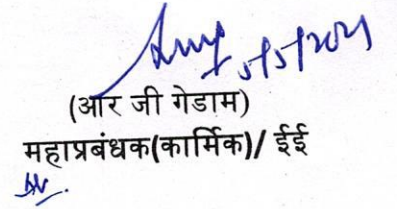 5/5/2021
(आर जी गेडाम)
महाप्रबंधक(कार्मिक)/ ईई